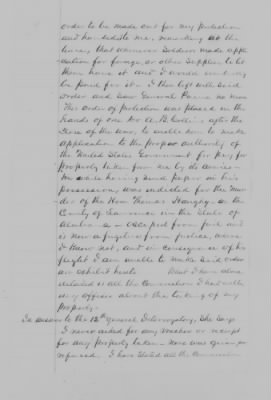 order to be made out for my protection
and her delicate me, remarking at the
time, that whenever soldiers made appli
cation for forage, or other supplies to let
them have it and I would in time
be paid for it. I then left with said
order and saw General no more
This order of protection was placed in the
hands of one Mr A. B. after the
close of the war, to enable him to make
application to the proper authority of
the United States Government for pay for
property taken from me by the armies.
He while having said paper in his
possession, was indicted for the Mur
der of the Hon Thomas in the
County of Lawrence in the State of
Alabama escaped from jail and
is now a fugitive from justice, where
I know not, and in consequence of his
flight I am unable to make said order
an exhibit hereto. What I have above
detailed is all the conversation I had with
any officer about the taking of my
property.
In answer to the 12th general Interrogatory, She says
I never asked for any voucher or receipt
for any property taken. None was given or
refused. I have stated all the conversation